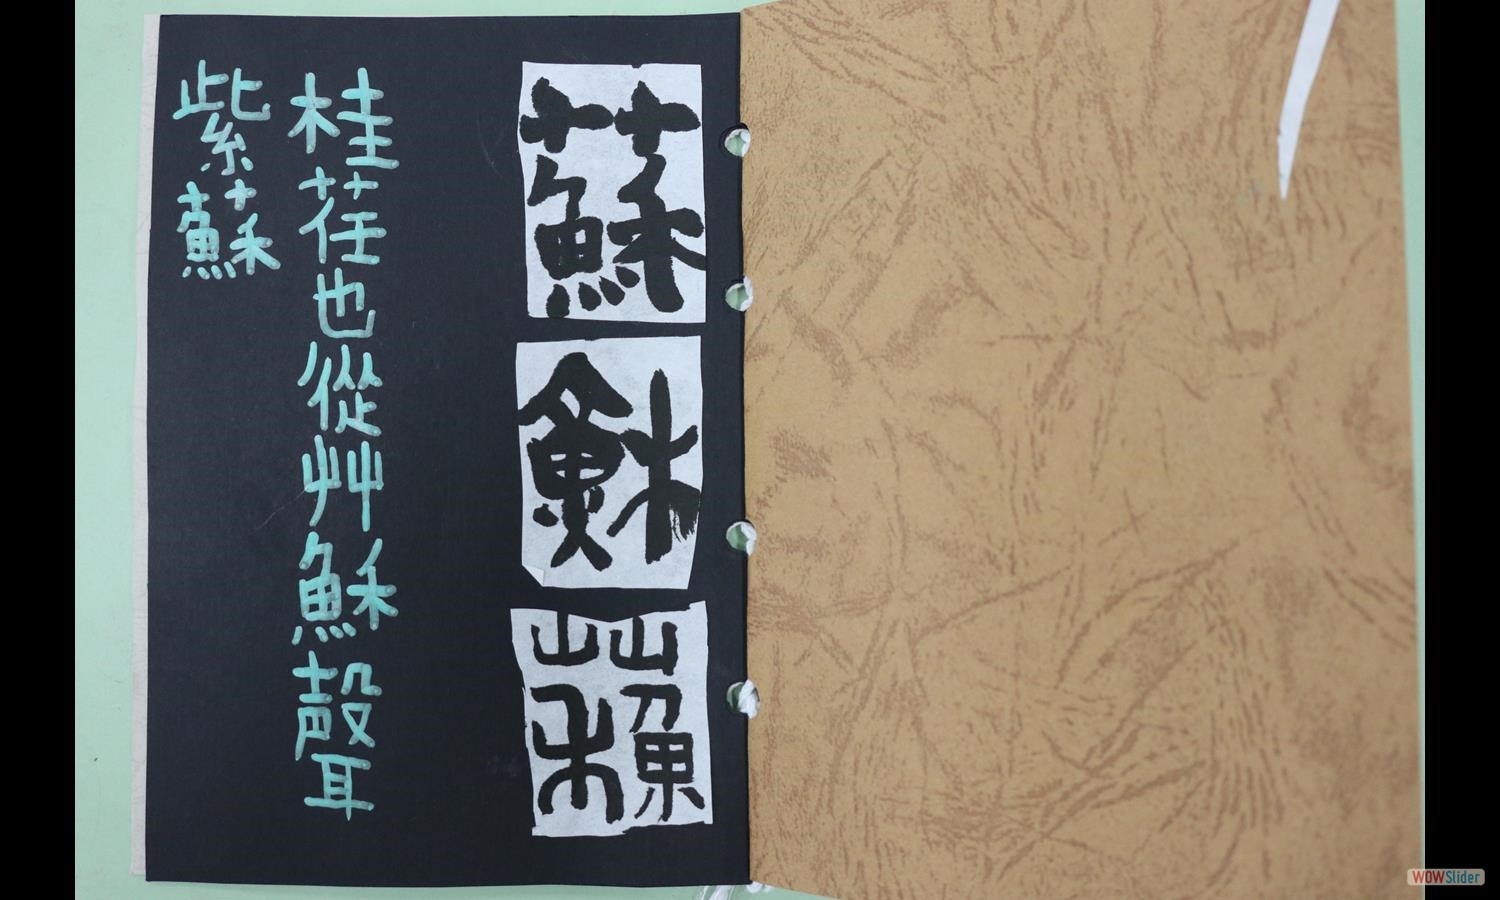 蘇
穌
蘓
桂荏也從艸穌聲
紫蘇
WOWSlider